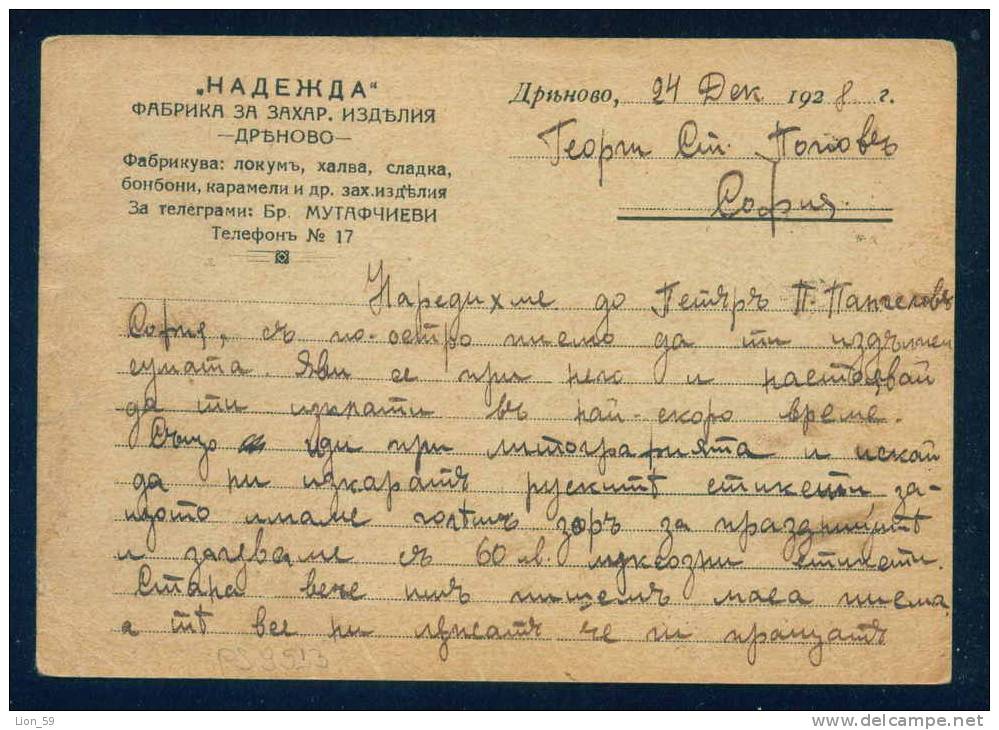 „НАДЕЖДА“
ФАБРИКА ЗА ЗАХАР. ИЗДѢЛИЯ
—ДРѢНОВО—
Фабрикува: локумъ, халва, сладка,
бонбони, карамели и др. зах.издѣлия
За телеграми: Бр. МУТАФЧИЕВИ
Телефонъ № 17
Дрѣново, 24 Дек 1928 г.
Георги Ст. Поповъ
София
Наредихме до Петъръ П. Пангеловъ
София, съ по-остро писмо да ти издължи
сумата. Яви се при него и настоявай
да ти изплати въ най-скоро време.
Също иди при литографията и искай
да ни изкаратъ рускитѣ етикети за-
щото имаме голѣмъ зоръ за празницитѣ
и загуваме съ 60 лв. луксозни етикети.
Стара вече имъ пишемъ маса писма
а тѣ все ни лъжатъ че ги пращатъ
Lion_59
www.delcampe.net